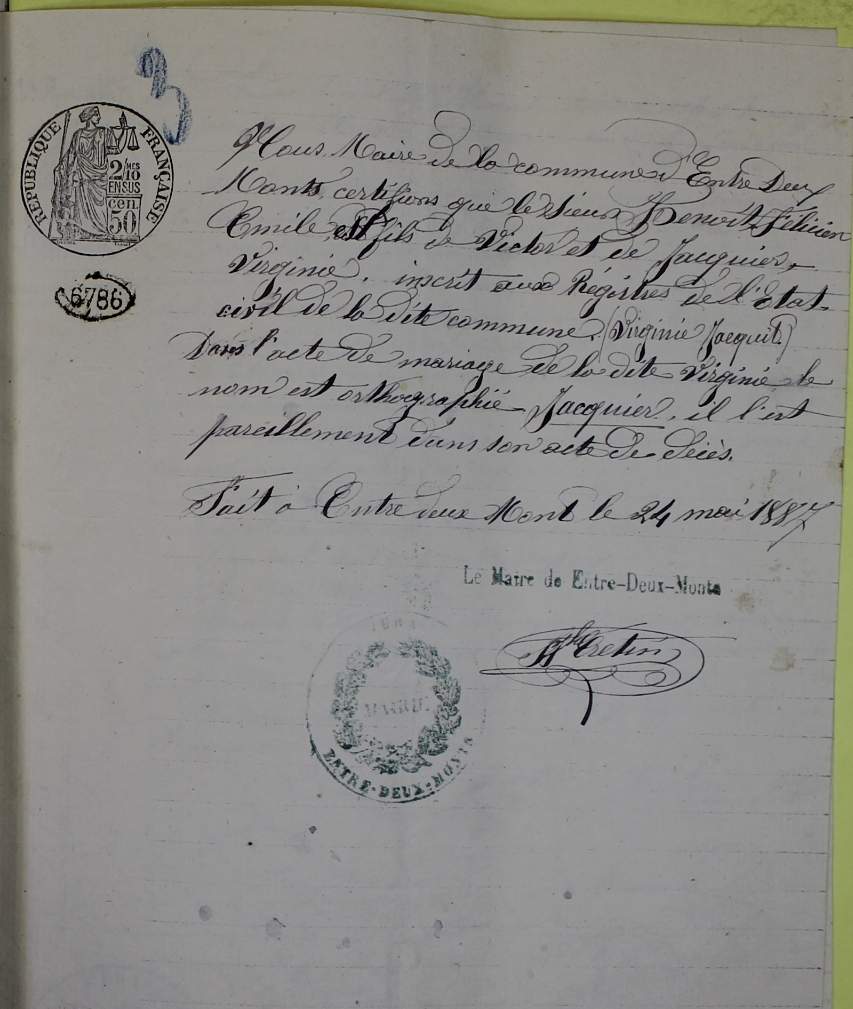 3
RÉPUBLIQUE FRANÇAISE
2/10 MES
EN SUS
cen.
50
6786
Nous Maire de la commune d'Entre Deux
Monts, certifions que le sieur Benoit Félicien
Emile, est fils de Victor et de Jacquier
Virginie, inscrit aux Régistres de l'Etat
civil de la dite commune. (Virginie Jacquit)
Dans l'acte de mariage de la dite Virginie le
nom est orthographié Jacquier, il l'est
pareillement dans son acte de décès.
Fait à Entre deux Mont le 24 mai 1887
Le Maire de Entre-Deux-Monts
Cretin
JURA
MAIRIE
ENTRE-DEUX-MONTS